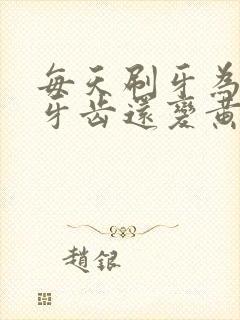 每天刷牙為
牙齒還變黃
趙銀